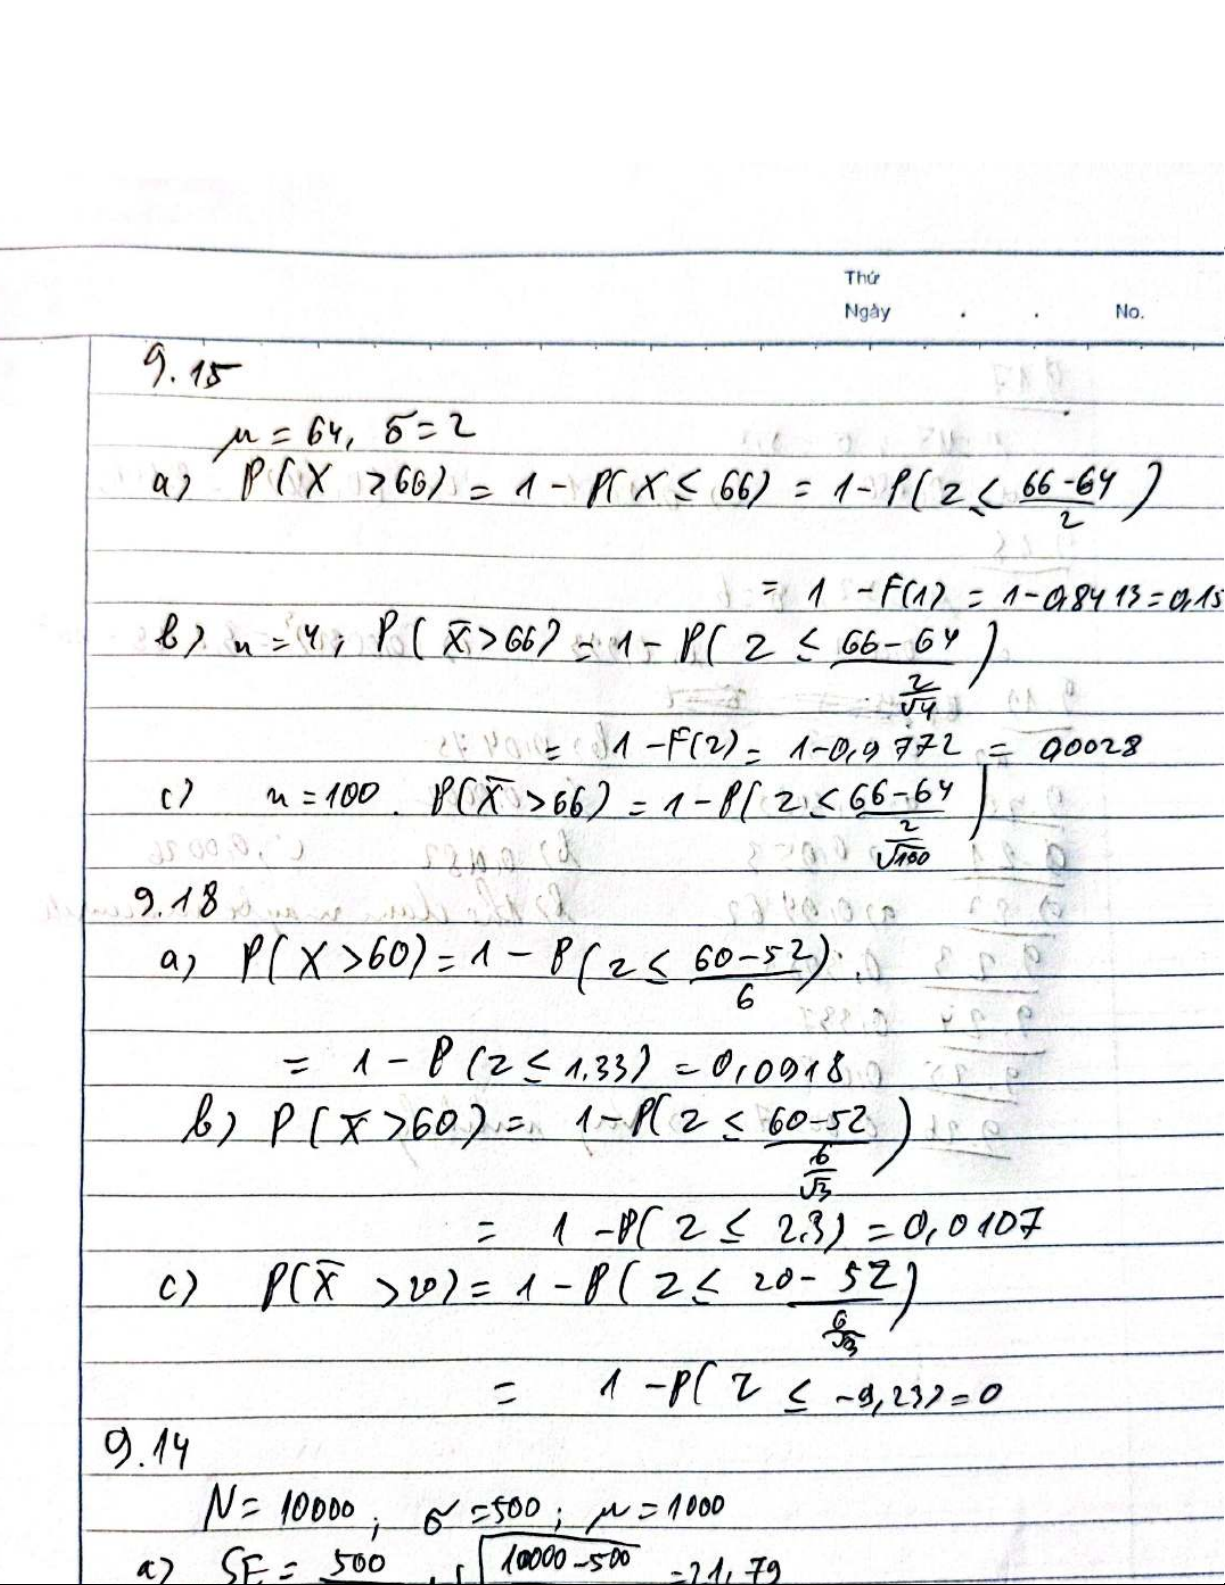 Thứ
Ngày . . No.
9.15
μ = 64, σ = 2
a) P(X > 66) = 1 - P(X ≤ 66) = 1 - P(Z ≤ (66-64)/2)
= 1 - F(1) = 1 - 0,8413 = 0,15
b) n = 4, P(X̄ > 66) = 1 - P(Z ≤ (66-64)/(2/√4))
= 1 - F(2) = 1 - 0,9772 = 0,0028
c) n = 100. P(X̄ > 66) = 1 - P(Z ≤ (66-64)/(2/√100))
9.18
a) P(X > 60) = 1 - P(Z ≤ (60-52)/6).
= 1 - P(Z ≤ 1,33) = 0,0918
b) P(X̄ > 60) = 1 - P(Z ≤ (60-52)/(6/√3))
= 1 - P(Z ≤ 2.3) = 0,0107
c) P(X̄ > 20) = 1 - P(Z ≤ (20-52)/(6/√3))
= 1 - P(Z ≤ -9,23) = 0
9.14
N = 10000; σ = 500; μ = 1000
a) SE = 500 √ 10000-500 = 21,79